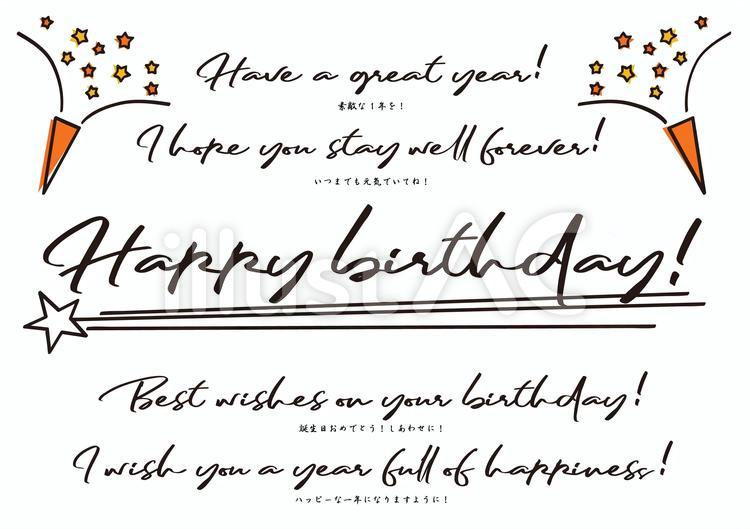 Have a great year!
素敵な1年を！
I hope you stay well forever!
いつまでも元気でいてね！
Happy birthday!
illustAC
Best wishes on your birthday!
誕生日おめでとう！しあわせに！
I wish you a year full of happiness!
ハッピーな一年になりますように！